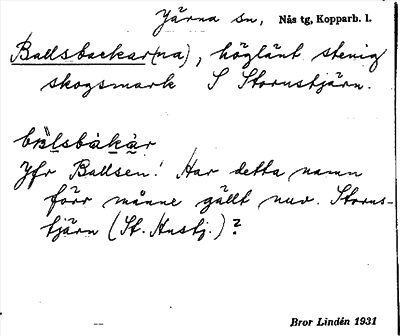 Järna sn, Nås tg, Kopparb. l.
Ballsbackar(na), höglänt stenig
skogsmark S Stornstjärn.
bälsbàkàr
Jfr Ballsen! Har detta namn
förr månne gällt nuv. Storns-
tjärn (St. Hustj.)?
Bror Lindén 1931